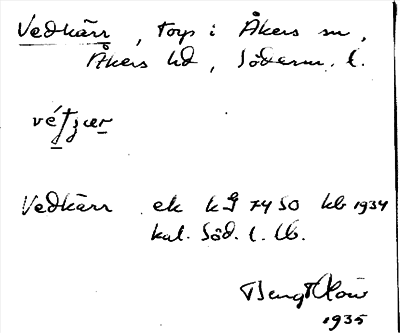 Vedkärr, torp i Åkers sn,
Åkers hd, Söderm. l.
Vedkärr ek kg 7450 kb 1934
kal. Söd. l. lb.
Bengt
1935